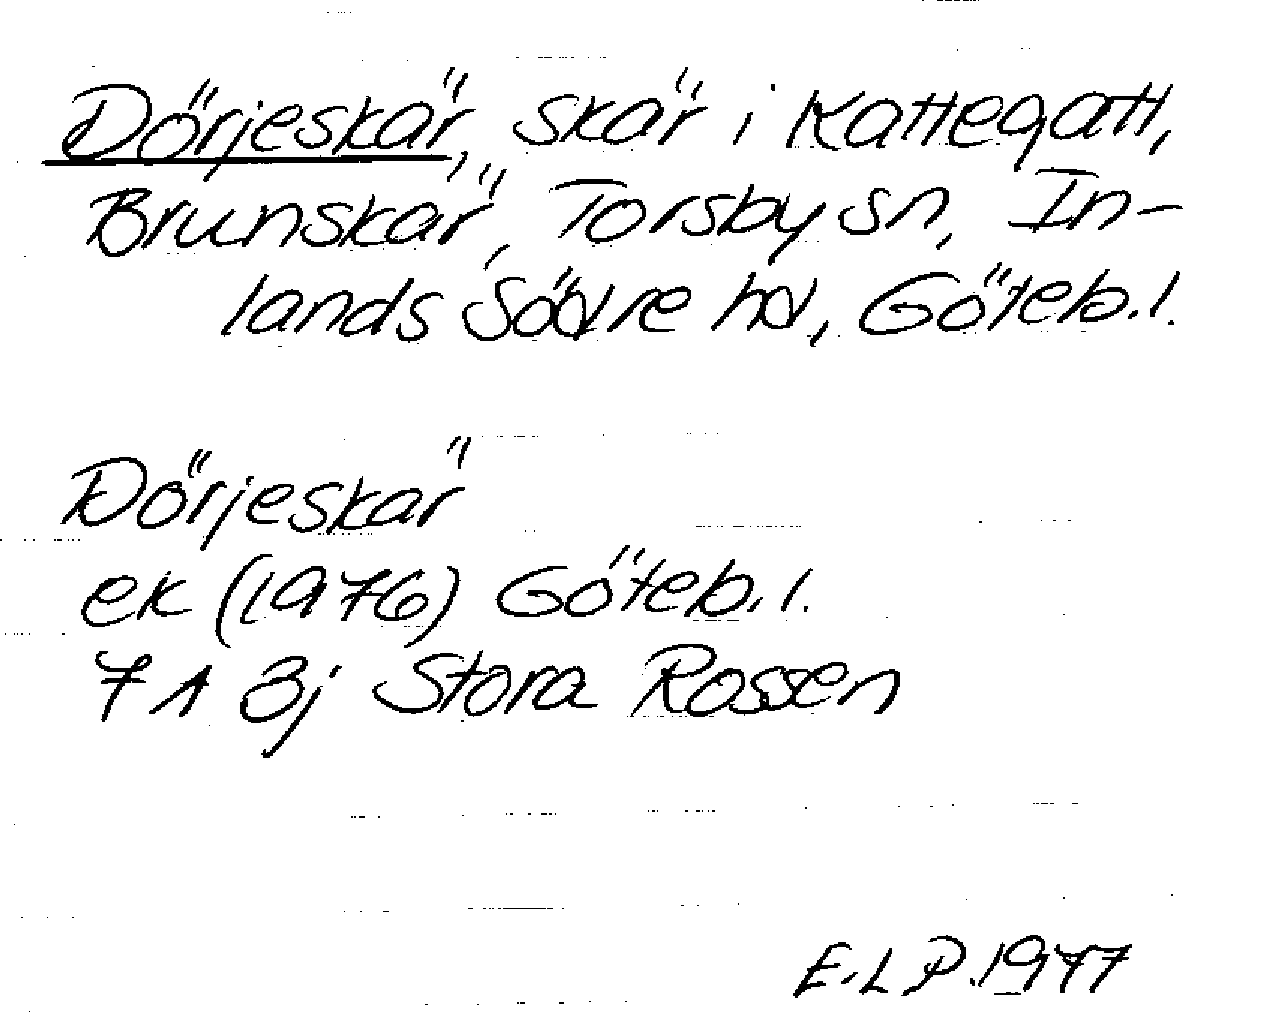 Dörjeskär, skär i Kattegatt,
Brunskär, Torsby sn, In-
lands Södre hd, Göteb.l.
Dörjeskär
ek (1976) Göteb.l.
7 A 3j Stora Rossen
E.L.P.1977